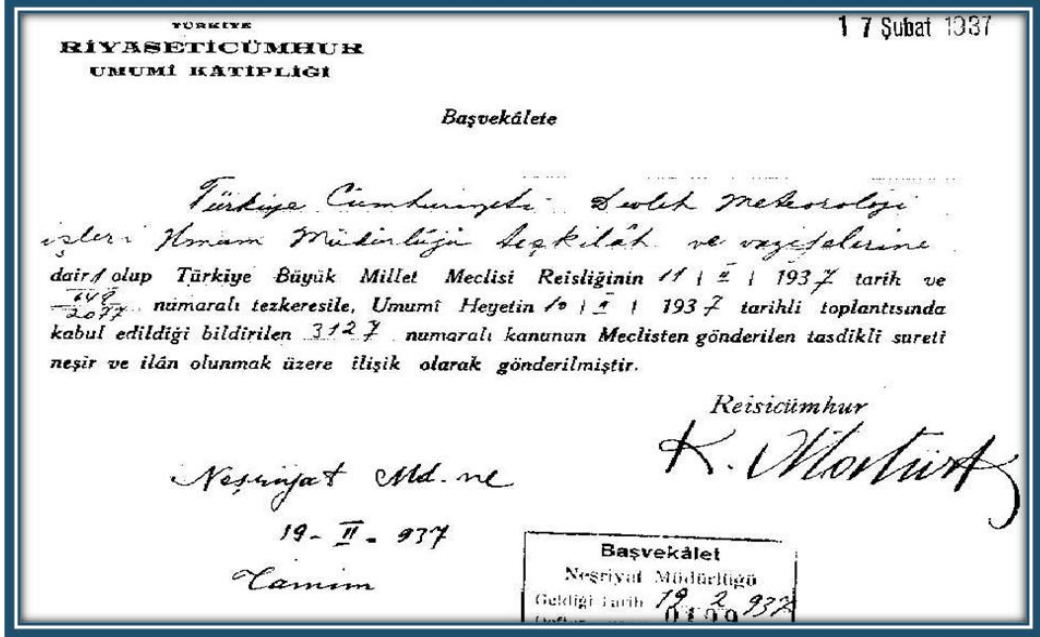 TÜRKİYE
RİYASETİCÜMHUR
UMUMÎ KÂTİPLİĞİ
1 7 Şubat 1937
Başvekâlete
Türkiye Cümhuriyeti Devlet Meteoroloji
işleri Umum Müdürlüğü teşkilât ve vazifelerine
dair olup Türkiye Büyük Millet Meclisi Reisliğinin 11 / II / 1937 tarih ve
649/2077 numaralı tezkeresile, Umumî Heyetin 10 / II / 1937 tarihli toplantısında
kabul edildiği bildirilen 3127 numaralı kanunun Meclisten gönderilen tasdikli sureti
neşir ve ilân olunmak üzere ilişik olarak gönderilmiştir.
Reisicümhur
K. Atatürk
Neşriyat Md. ne
19 - II - 937
Başvekâlet
Neşriyat Müdürlüğü
Geldiği tarih 19 2 937